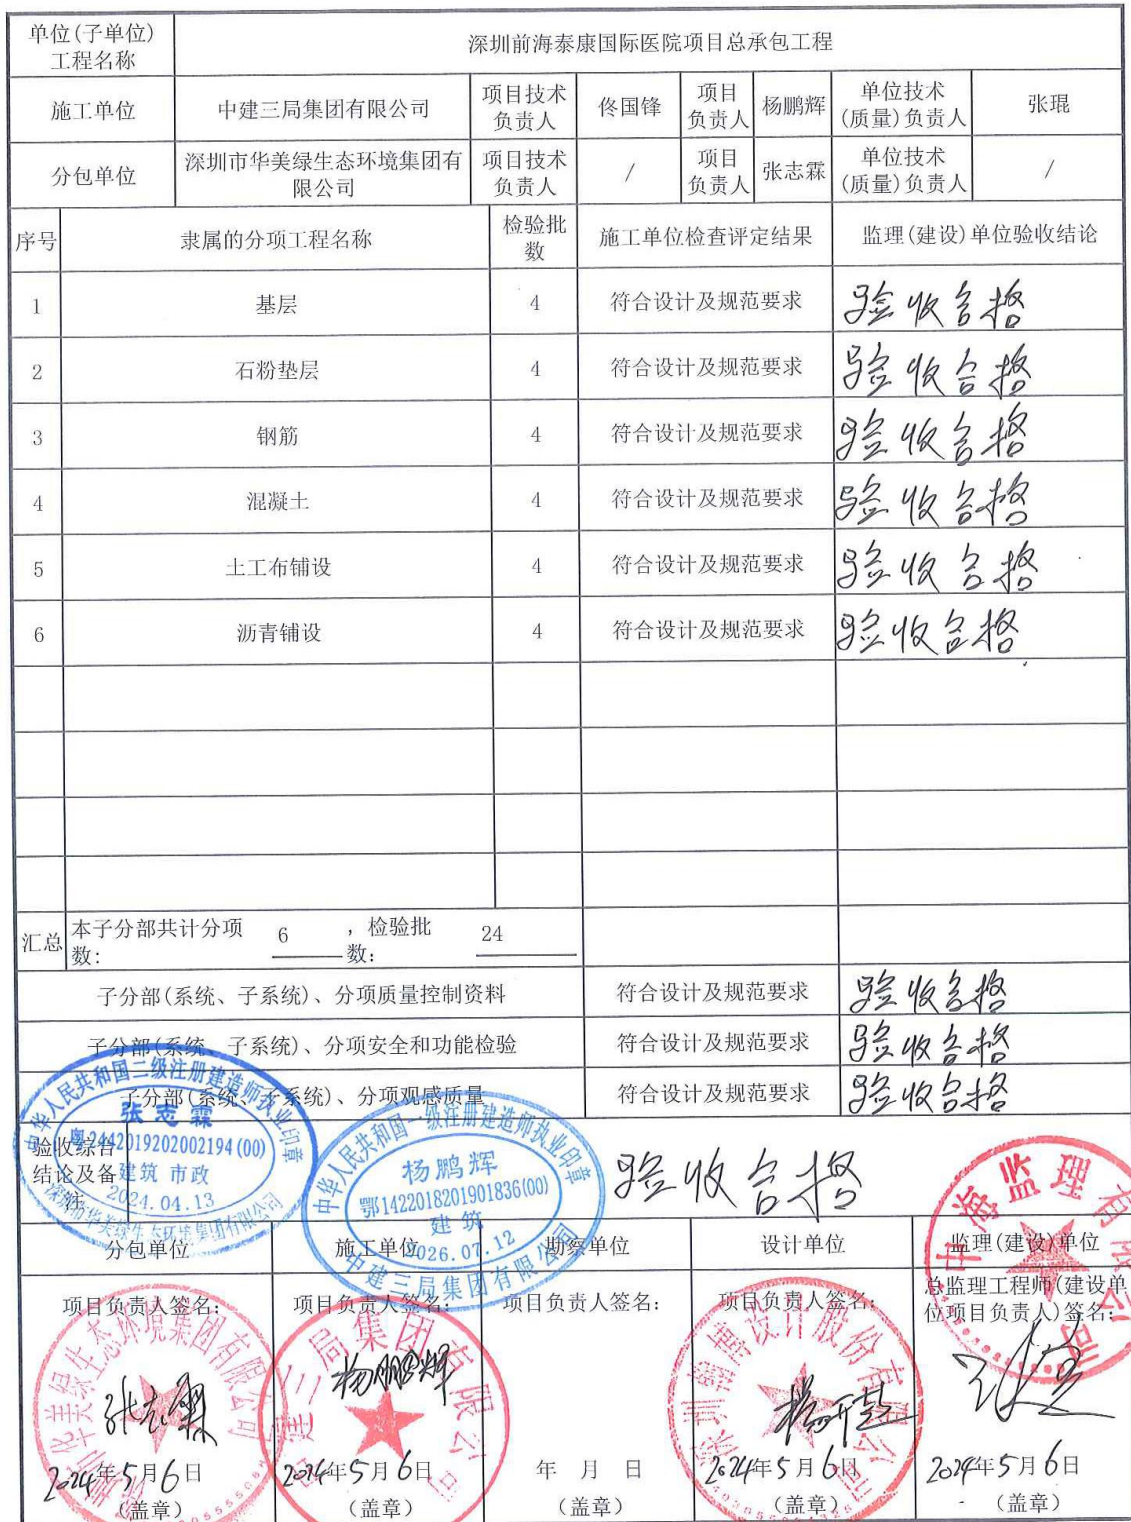 单位(子单位)
工程名称
深圳前海泰康国际医院项目总承包工程
施工单位
中建三局集团有限公司
项目技术
负责人
佟国锋
项目
负责人
杨鹏辉
单位技术
(质量)负责人
张琨
分包单位
深圳市华美绿生态环境集团有
限公司
项目技术
负责人
/
项目
负责人
张志霖
单位技术
(质量)负责人
/
序号
隶属的分项工程名称
检验批
数
施工单位检查评定结果
监理(建设)单位验收结论
1
基层
4
符合设计及规范要求
验收合格
2
石粉垫层
4
符合设计及规范要求
验收合格
3
钢筋
4
符合设计及规范要求
验收合格
4
混凝土
4
符合设计及规范要求
验收合格
5
土工布铺设
4
符合设计及规范要求
验收合格
6
沥青铺设
4
符合设计及规范要求
验收合格
汇总
本子分部共计分项
数:
6
,检验批
数:
24
子分部(系统、子系统)、分项质量控制资料
符合设计及规范要求
验收合格
子分部(系统、子系统)、分项安全和功能检验
符合设计及规范要求
验收合格
子分部(系统、子系统)、分项观感质量
符合设计及规范要求
验收合格
中华人民共和国二级注册建造师执业印章
张志霖
粤2442019202002194(00)
建筑 市政
2024.04.13
深圳市华美绿生态环境集团有限公司
中华人民共和国一级注册建造师执业印章
杨鹏辉
鄂1422018201901836(00)
建筑
2026.07.12
中建三局集团有限公司
验收综合
结论及备
注
验收合格
中海监理有限公司
分包单位
施工单位
勘察单位
设计单位
监理(建设)单位
项目负责人签名:
项目负责人签名:
项目负责人签名:
项目负责人签名:
总监理工程师(建设单
位项目负责人)签名:
张志霖
杨鹏辉
2024年5月6日
2024年5月6日
年 月 日
2024年5月6日
2024年5月6日
(盖章)
(盖章)
(盖章)
(盖章)
(盖章)